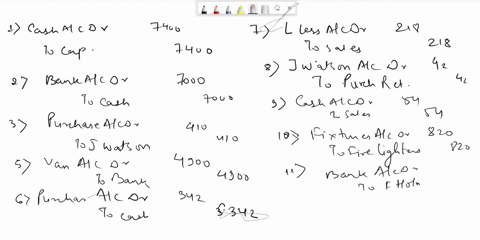 1) Cash A/c Dr 7400
To Cap. 7400
2) Bank A/c Dr 7000
To Cash 7000
3) Purchase A/c Dr 410
To J Watson 410
5) Van A/c Dr 4900
To Bank 4900
6) Purchas A/c Dr 342
To Cash 342
7) L Less A/c Dr 218
To Sales 218
8) J Watson A/c Dr 42
To Purch Ret. 42
9) Cash A/c Dr 54
Sales 54
10) Fixtures A/c Dr 820
To Fire lighters 820
11) Bank A/c Dr
To F Holm